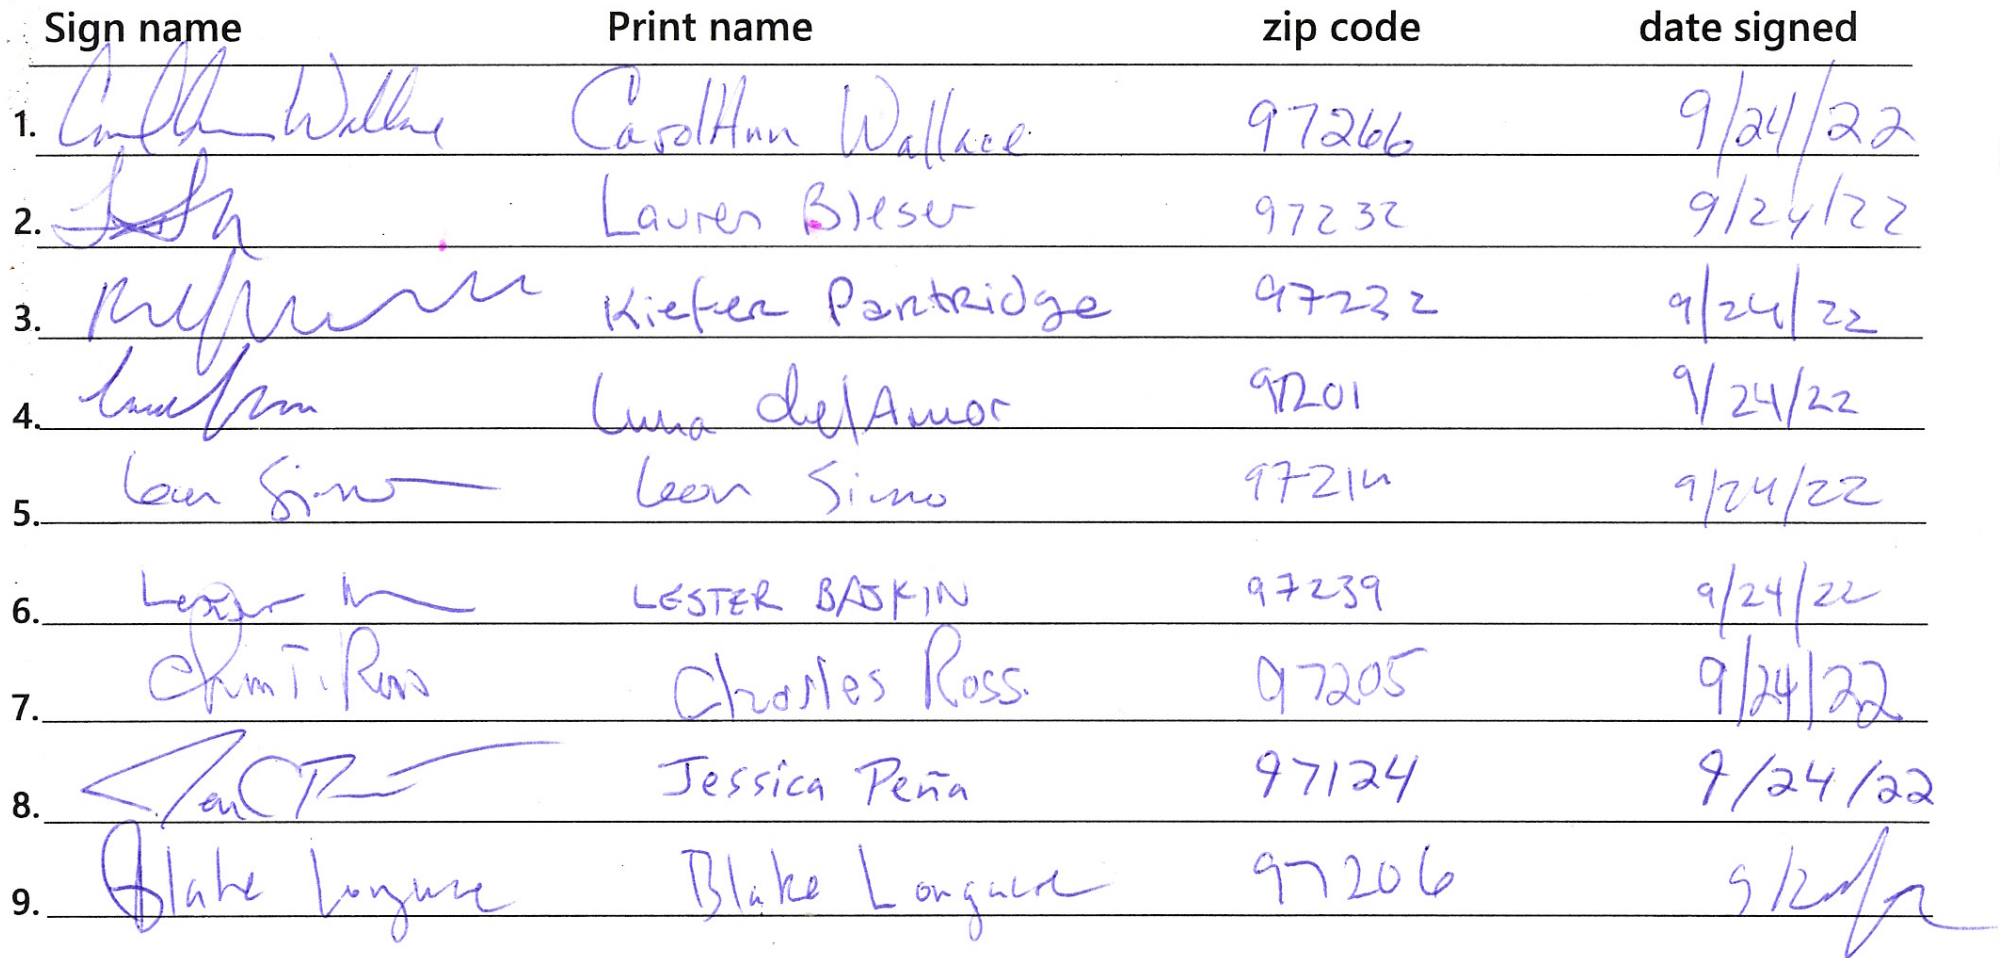 Sign name Print name zip code date signed
1. CarolAnn Wallace CarolAnn Wallace 97266 9/24/22
2. Lauren Bleser 97232 9/24/22
3. Kiefer Partridge 97232 9/24/22
4. Luna del Amor 97201 9/24/22
5. Leon Simo Leon Simo 97214 9/24/22
6. Lester LESTER BASKIN 97239 9/24/22
7. Ross Charles Ross 97205 9/24/22
8. Jessica Peña 97124 9/24/22
9. Blake Blake 97206